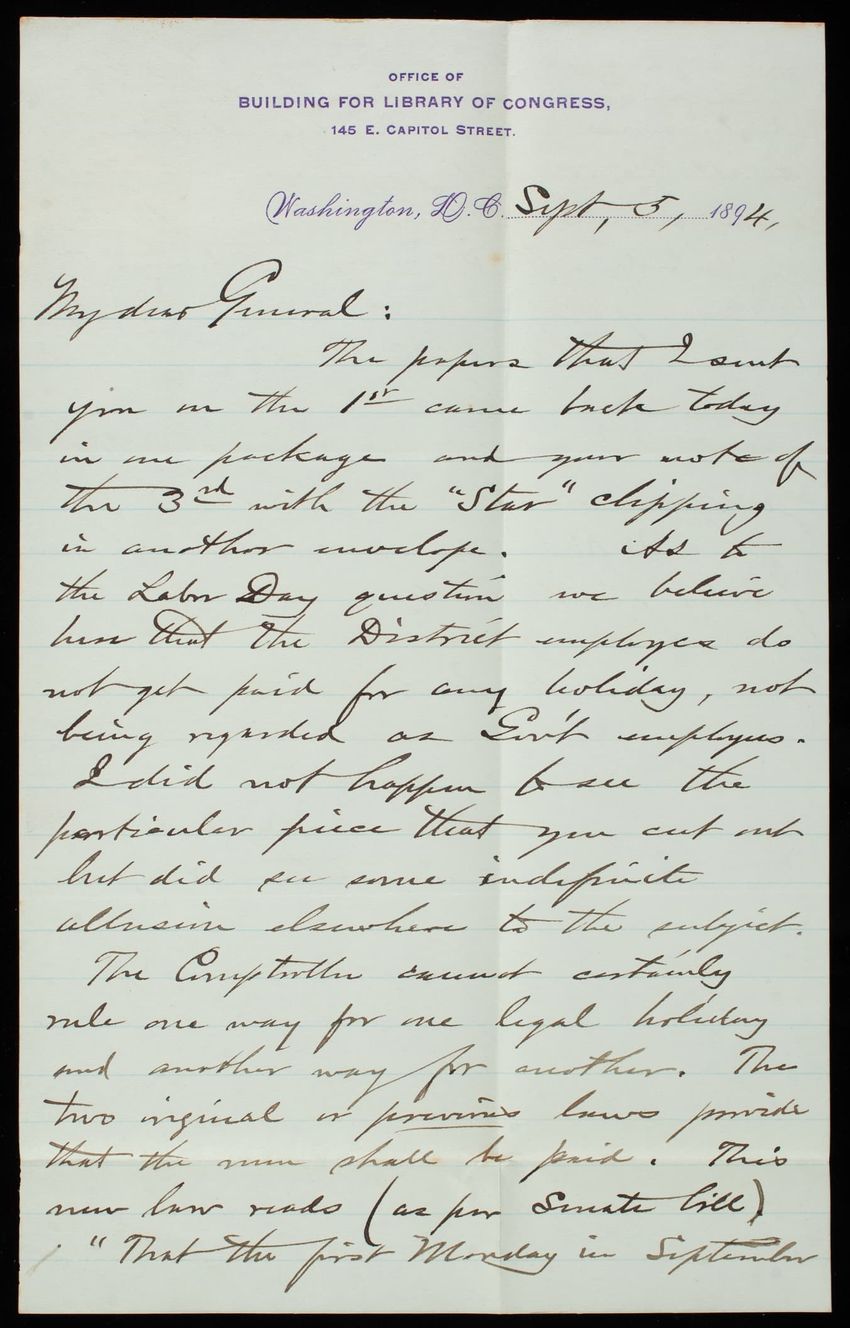 OFFICE OF
BUILDING FOR LIBRARY OF CONGRESS,
145 E. CAPITOL STREET.
Washington, D.C. Sept, 5, 1894,
My dear General:
The papers that I sent
you on the 1st came back today
in one package and your note of
the 3rd with the "Star" clipping
in another envelope. As to
the Labor Day question we believe
here that the District employes do
not get paid for any holiday, not
being regarded as Gov't employes.
I did not happen to see the
particular piece that you cut out
but did see some indefinite
allusion elsewhere to the subject.
The Comptroller cannot certainly
rule one way for one legal holiday
and another way for another. The
two original or previous laws provide
that the men shall be paid. This
new law reads (as per Senate bill)
"That the first Monday in September